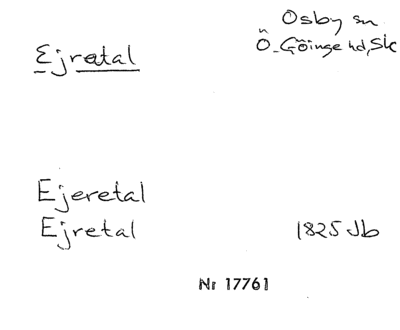 Osby sn
Ö. Göinge hd, Sk
Ejratal
Ejeretal
Ejretal 1825 Jb
Nr 17761